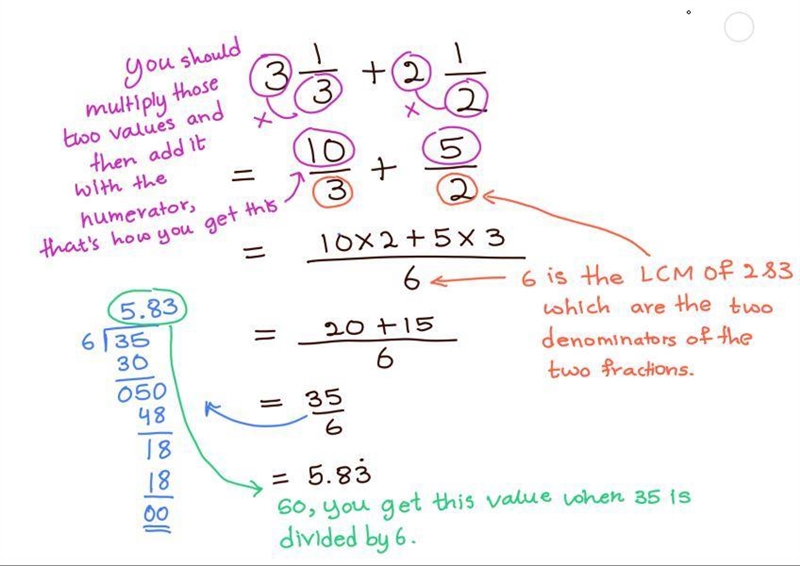 you should
multiply those
two values and
then add it
with the
numerator,
that's how you get this
3 1/3 + 2 1/2
x x
= 10/3 + 5/2
= 10 x 2 + 5 x 3 / 6
6 is the LCM of 2&3
which are the two
denominators of the
two fractions.
= 20 + 15 / 6
= 35/6
= 5.83̇
5.83
6 35
30
050
48
18
18
00
So, you get this value when 35 is
divided by 6.